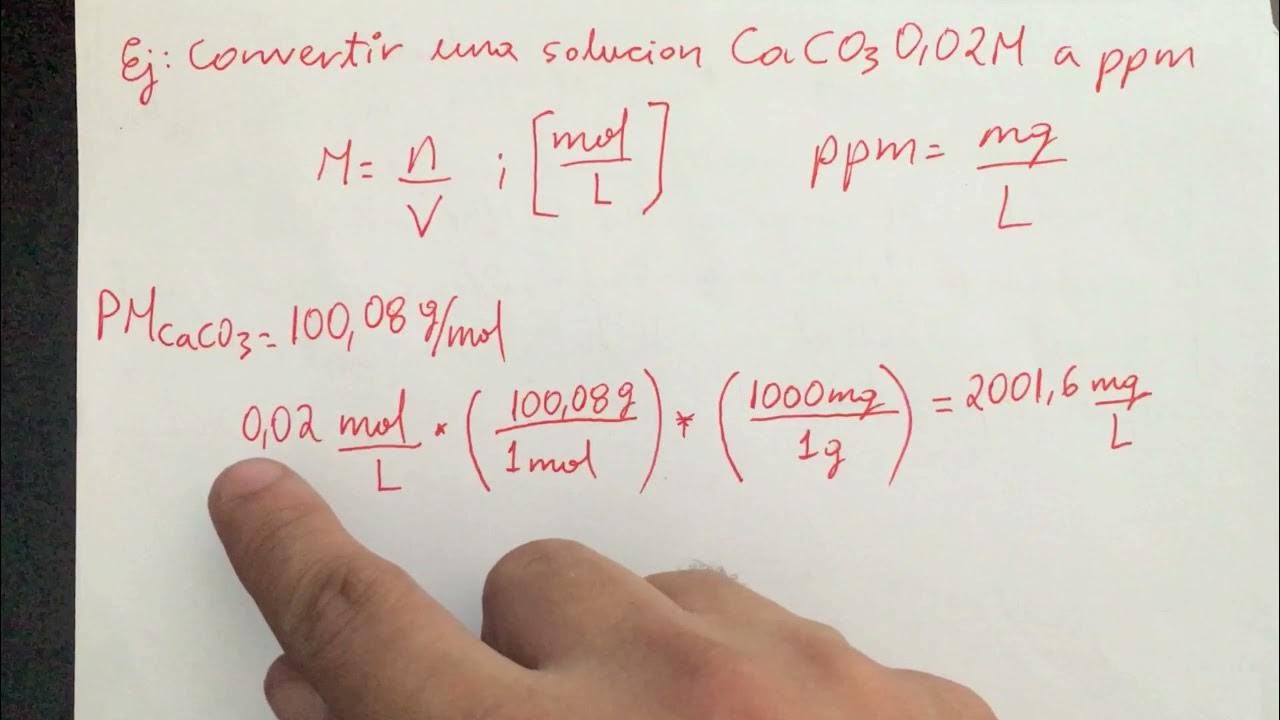 Ej: Convertir una solucion CaCO3 0,02M a ppm
M = n/V ; [mol/L] ppm = mg/L
PM CaCO3 = 100,08 g/mol
0,02 mol/L * (100,08g/1mol) * (1000mg/1g) = 2001,6 mg/L